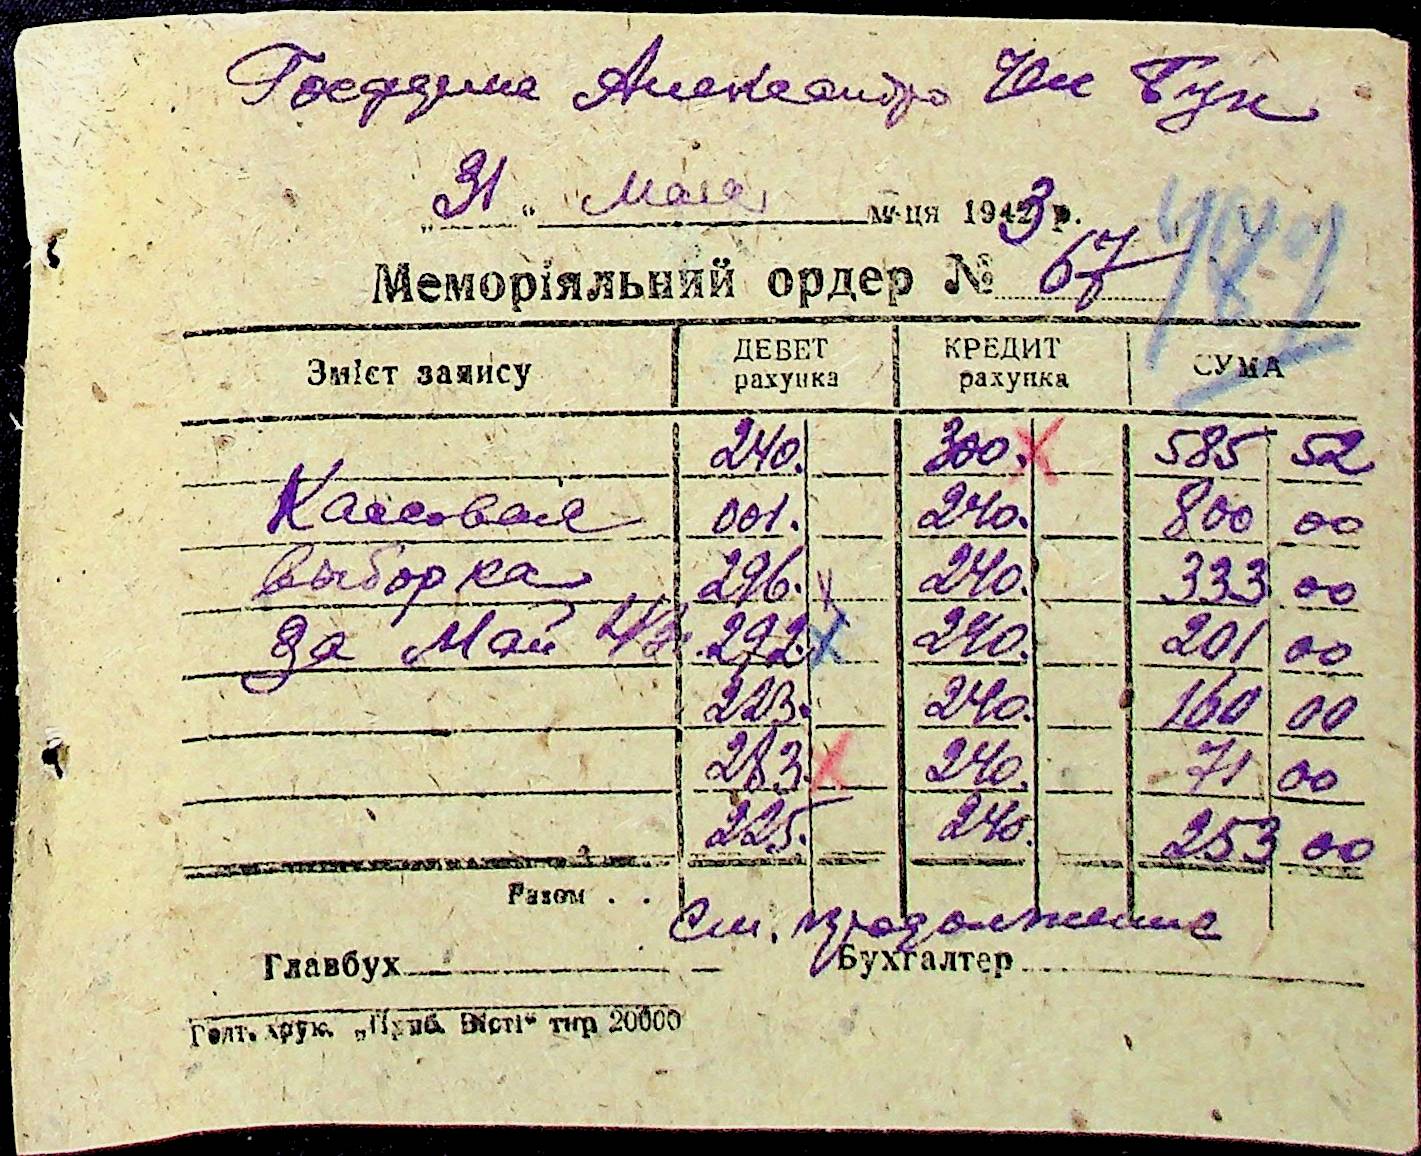 Госферма Александро
"31" Мая м-ця 1943 р.
Меморіяльний ордер № 67
Зміст запису ДЕБЕТ рахунка КРЕДИТ рахунка СУМА
240. 300. 585 52
Кассовая 001. 240. 800 00
выборка 296. 240. 333 00
За Май 292. 240. 201 00
223. 240. 160 00
283. 240. 71 00
225. 240. 253 00
Разом . .
См. продолжение
Главбух Бухгалтер
Голт. друк. „Приб. Вісті“ тир 20000